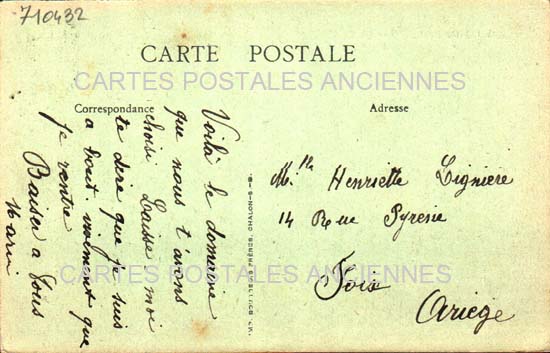 710432
CARTE POSTALE
CARTES POSTALES ANCIENNES
Correspondance
Adresse
Voilà le domaine
que nous t'avons
choisi Laisse moi
te dire que je suis
a bout vivement que
je rentre
Baiser a tous
Marie
Mlle Henriette Lignière
14 Rue Pyrene
Foix
Ariège
CARTES POSTALES ANCIENNES
FRÈRES, CHALON-S-S